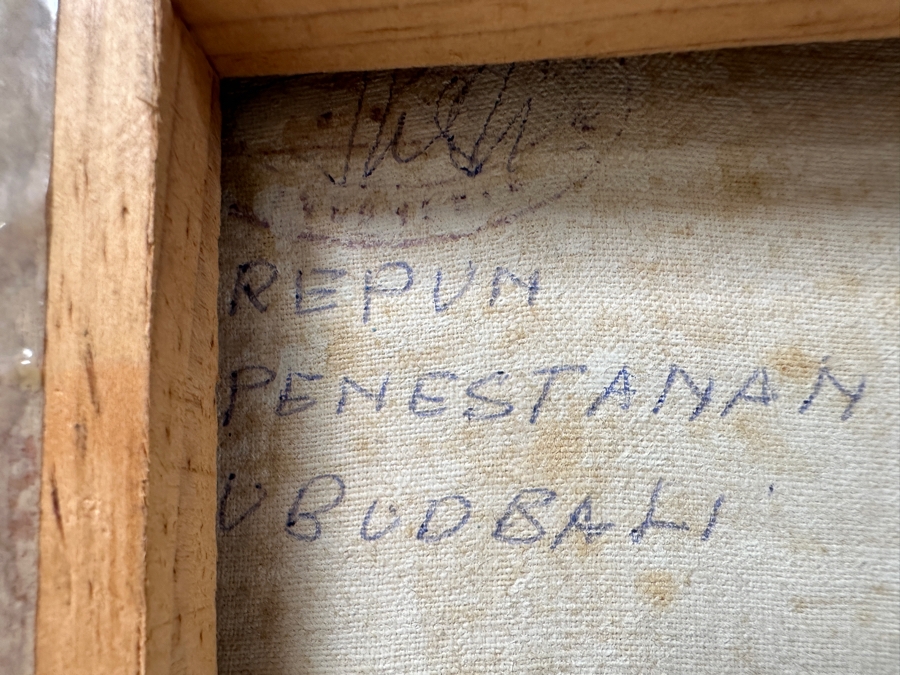 REPUN
PENESTANAN
UBUD BALI